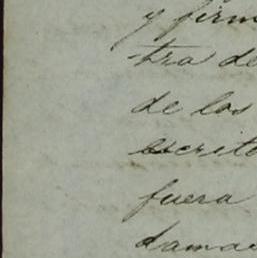 y firm
tra de
de los
escrito
fuera
dama